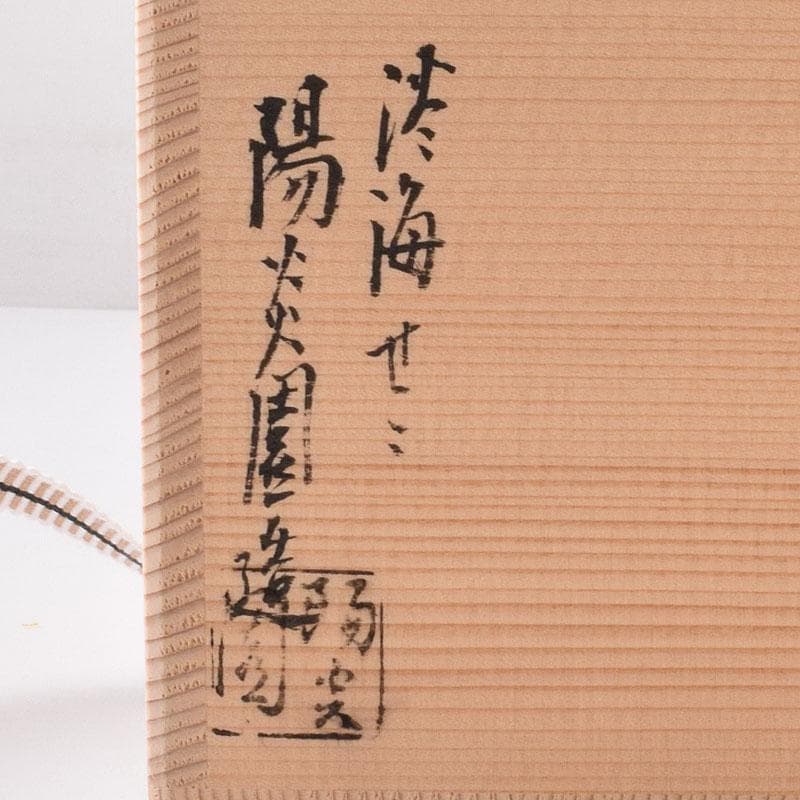 淡海せゝ
陽炎園造
陽炎園